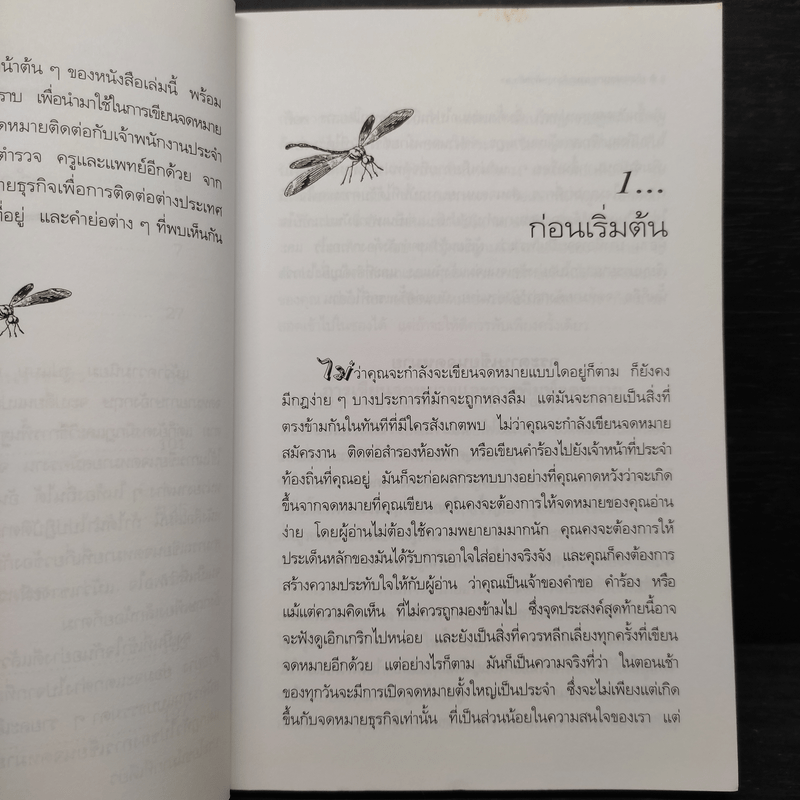 น้าต้น ๆ ของหนังสือเล่มนี้ พร้อม
ราบ เพื่อนำมาใช้ในการเขียนจดหมาย
ดหมายติดต่อกับเจ้าพนักงานประจำ
ตำรวจ ครูและแพทย์อีกด้วย จาก
ายธุรกิจเพื่อการติดต่อต่างประเทศ
ที่อยู่ และคำย่อต่าง ๆ ที่พบเห็นกัน
1...
ก่อนเริ่มต้น
ไม่ว่าคุณจะกำลังจะเขียนจดหมายแบบใดอยู่ก็ตาม ก็ยังคง
มีกฎง่าย ๆ บางประการที่มักจะถูกหลงลืม แต่มันจะกลายเป็นสิ่งที่
ตรงข้ามกันในทันทีที่มีใครสังเกตพบ ไม่ว่าคุณจะกำลังเขียนจดหมาย
สมัครงาน ติดต่อสำรองห้องพัก หรือเขียนคำร้องไปยังเจ้าหน้าที่ประจำ
ท้องถิ่นที่คุณอยู่ มันก็จะก่อผลกระทบบางอย่างที่คุณคาดหวังว่าจะเกิด
ขึ้นจากจดหมายที่คุณเขียน คุณคงจะต้องการให้จดหมายของคุณอ่าน
ง่าย โดยผู้อ่านไม่ต้องใช้ความพยายามมากนัก คุณคงจะต้องการให้
ประเด็นหลักของมันได้รับการเอาใจใส่อย่างจริงจัง และคุณก็คงต้องการ
สร้างความประทับใจให้กับผู้อ่าน ว่าคุณเป็นเจ้าของคำขอ คำร้อง หรือ
แม้แต่ความคิดเห็น ที่ไม่ควรถูกมองข้ามไป ซึ่งจุดประสงค์สุดท้ายนี้อาจ
จะฟังดูเอิกเกริกไปหน่อย และยังเป็นสิ่งที่ควรหลีกเลี่ยงทุกครั้งที่เขียน
จดหมายอีกด้วย แต่อย่างไรก็ตาม มันก็เป็นความจริงที่ว่า ในตอนเช้า
ของทุกวันจะมีการเปิดจดหมายตั้งใหญ่เป็นประจำ ซึ่งจะไม่เพียงแต่เกิด
ขึ้นกับจดหมายธุรกิจเท่านั้น ที่เป็นส่วนน้อยในความสนใจของเรา แต่